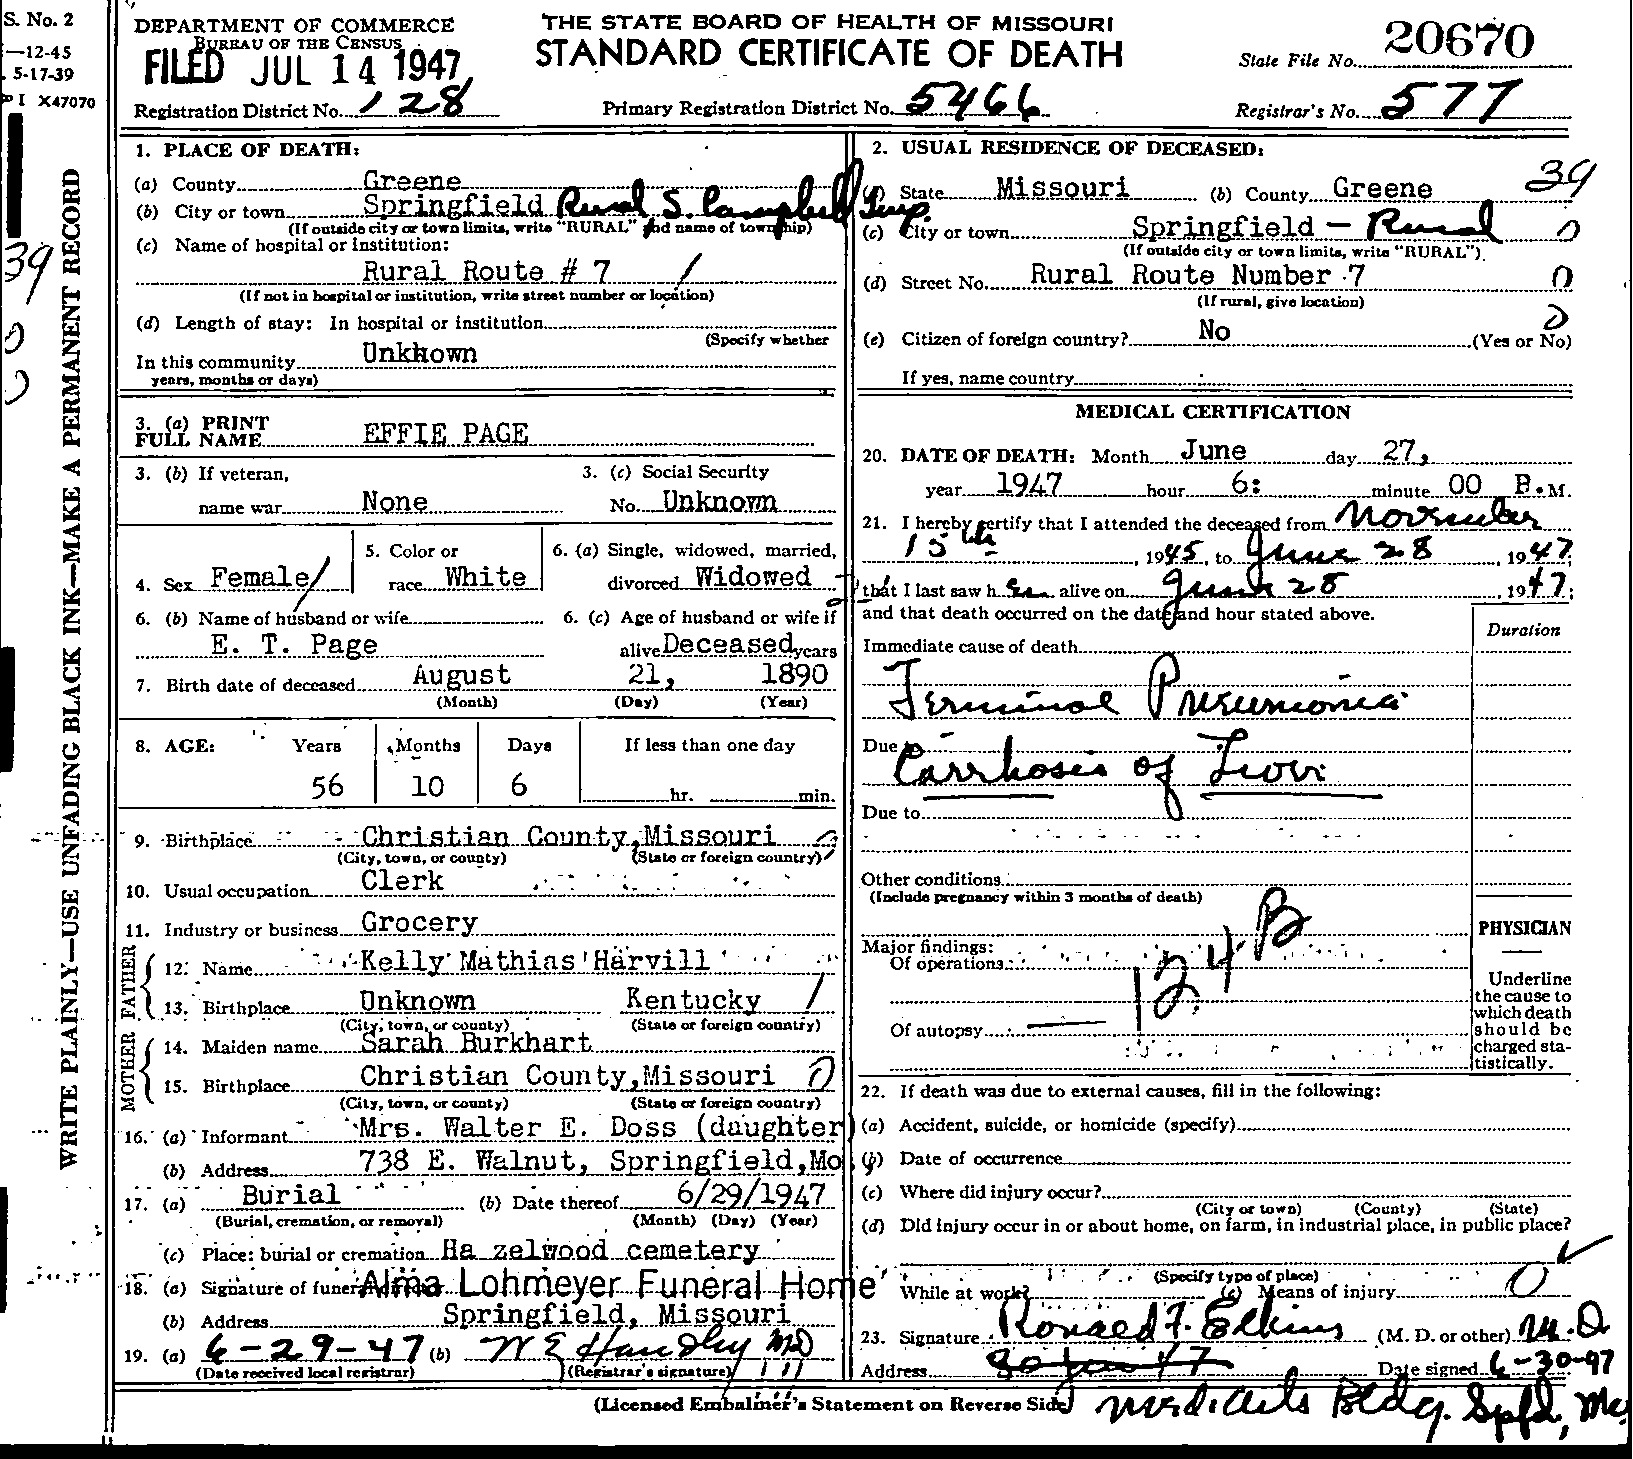 S. No. 2
—12-45
5-17-39
PI X47070
WRITE PLAINLY—USE UNFADING BLACK INK—MAKE A PERMANENT RECORD
39
0
0
DEPARTMENT OF COMMERCE
BUREAU OF THE CENSUS
FILED JUL 14 1947
THE STATE BOARD OF HEALTH OF MISSOURI
STANDARD CERTIFICATE OF DEATH
State File No. 20670
Registration District No. 128
Primary Registration District No. 5466
Registrar's No. 577
1. PLACE OF DEATH:
(a) County Greene
(b) City or town Springfield Rural S. Campbell Twp.
(If outside city or town limits, write "RURAL" and name of township)
(c) Name of hospital or institution:
Rural Route # 7 /
(If not in hospital or institution, write street number or location)
(d) Length of stay: In hospital or institution
(Specify whether
In this community Unkhown
years, months or days)
2. USUAL RESIDENCE OF DECEASED:
(a) State Missouri (b) County Greene 39
(c) City or town Springfield — Rural 0
(If outside city or town limits, write "RURAL")
(d) Street No. Rural Route Number 7 0
(If rural, give location)
0
(e) Citizen of foreign country? No (Yes or No)
If yes, name country
3. (a) PRINT
FULL NAME EFFIE PAGE
3. (b) If veteran,
name war None
3. (c) Social Security
No. Unknown
4. Sex Female /
5. Color or
race White
6. (a) Single, widowed, married,
divorced Widowed
6. (b) Name of husband or wife
E. T. Page
6. (c) Age of husband or wife if
alive Deceased years
7. Birth date of deceased August 21, 1890
(Month) (Day) (Year)
8. AGE: Years Months Days If less than one day
56 10 6 hr. min.
9. Birthplace Christian County, Missouri
(City, town, or county) (State or foreign country)
10. Usual occupation Clerk
11. Industry or business Grocery
FATHER
12. Name Kelly Mathias Harvill
13. Birthplace Unknown Kentucky /
(City, town, or county) (State or foreign country)
MOTHER
14. Maiden name Sarah Burkhart
15. Birthplace Christian County, Missouri 0
(City, town, or county) (State or foreign country)
16. (a) Informant Mrs. Walter E. Doss (daughter)
(b) Address 738 E. Walnut, Springfield, Mo
17. (a) Burial (b) Date thereof 6/29/1947
(Burial, cremation, or removal) (Month) (Day) (Year)
(c) Place: burial or cremation Ha zelwood cemetery
18. (a) Signature of funeral Alma Lohmeyer Funeral Home
(b) Address Springfield, Missouri
19. (a) 6-29-47 (b) W E Handley MD
(Date received local registrar) (Registrar's signature)
MEDICAL CERTIFICATION
20. DATE OF DEATH: Month June day 27,
year 1947 hour 6: minute 00 P.M.
21. I hereby certify that I attended the deceased from November
15th, 1945, to June 28, 1947;
that I last saw her alive on June 28, 1947;
and that death occurred on the date and hour stated above.
Duration
Immediate cause of death
Terminal Pneumonia
Due to
Carrhosis of Liver
Due to
Other conditions
(Include pregnancy within 3 months of death)
Major findings:
Of operations
124B
Of autopsy —
PHYSICIAN
Underline
the cause to
which death
should be
charged sta-
tistically.
22. If death was due to external causes, fill in the following:
(a) Accident, suicide, or homicide (specify)
(b) Date of occurrence
(c) Where did injury occur?
(City or town) (County) (State)
(d) Did injury occur in or about home, on farm, in industrial place, in public place?
(Specify type of place)
While at work? (e) Means of injury 0
23. Signature Ronald F. Elkins (M. D. or other) M.D
Address Date signed 6-30-47
(Licensed Embalmer's Statement on Reverse Side)
Med. Arts Bldg. Spfd, Mo.